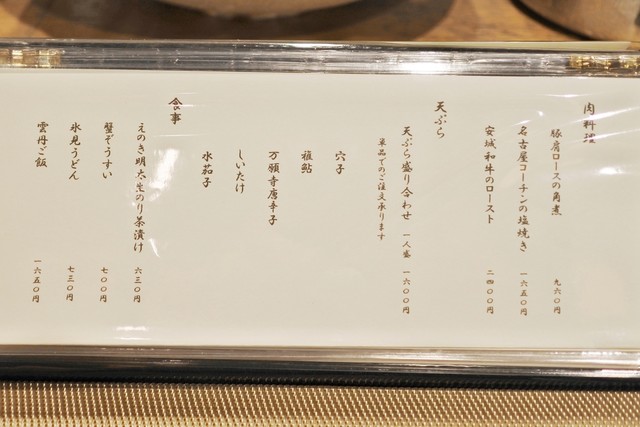 肉料理
豚肩ロースの角煮 九六〇円
名古屋コーチンの塩焼き 一六五〇円
安城和牛のロースト 二四〇〇円
天ぷら
天ぷら盛り合わせ 一人盛 一六〇〇円
単品でのご注文承ります
穴子
稚鮎
万願寺唐辛子
しいたけ
水茄子
食事
えのき明太生のり茶漬け 六三〇円
蟹ぞうすい 七〇〇円
氷見うどん 七三〇円
雲丹ご飯 一六五〇円